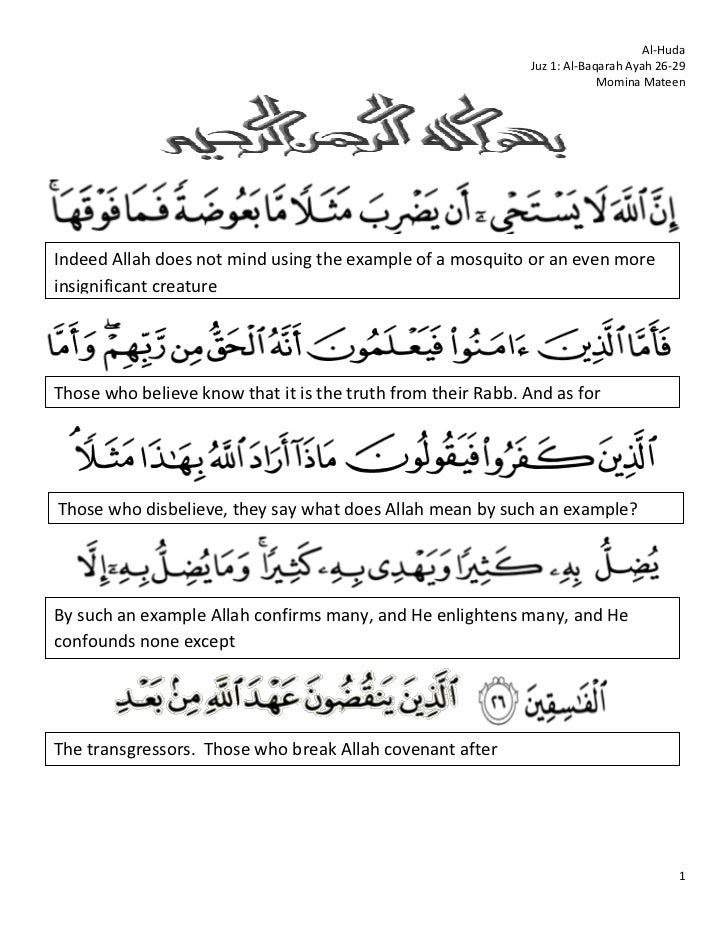 Al-Huda
Juz 1: Al-Baqarah Ayah 26-29
Momina Mateen
بسم الله الرحمن الرحيم
إِنَّ ٱللَّهَ لَا يَسْتَحْىِۦٓ أَن يَضْرِبَ مَثَلًا مَّا بَعُوضَةً فَمَا فَوْقَهَا ۚ
Indeed Allah does not mind using the example of a mosquito or an even more
insignificant creature
فَأَمَّا ٱلَّذِينَ ءَامَنُوا۟ فَيَعْلَمُونَ أَنَّهُ ٱلْحَقُّ مِن رَّبِّهِمْ ۖ وَأَمَّا
Those who believe know that it is the truth from their Rabb. And as for
ٱلَّذِينَ كَفَرُوا۟ فَيَقُولُونَ مَاذَآ أَرَادَ ٱللَّهُ بِهَـٰذَا مَثَلًا ۘ
Those who disbelieve, they say what does Allah mean by such an example?
يُضِلُّ بِهِۦ كَثِيرًا وَيَهْدِى بِهِۦ كَثِيرًا ۚ وَمَا يُضِلُّ بِهِۦٓ إِلَّا
By such an example Allah confirms many, and He enlightens many, and He
confounds none except
ٱلْفَـٰسِقِينَ ٢٦ ٱلَّذِينَ يَنقُضُونَ عَهْدَ ٱللَّهِ مِنۢ بَعْدِ
The transgressors.  Those who break Allah covenant after
1